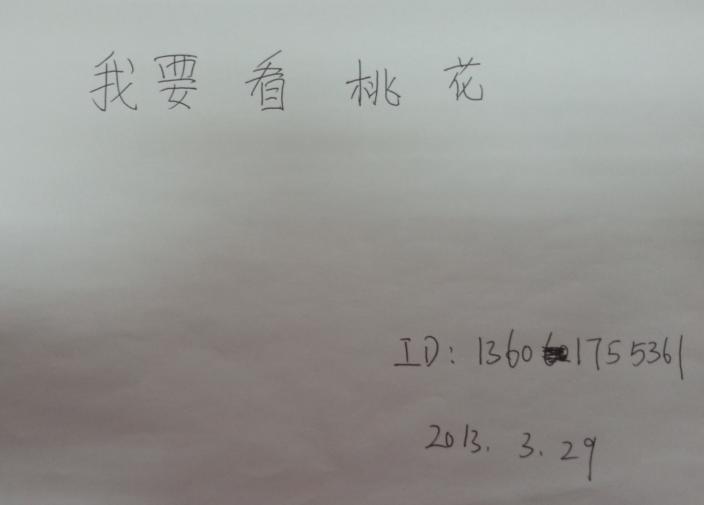 我要看桃花
ID: 13601755361
2013.3.29